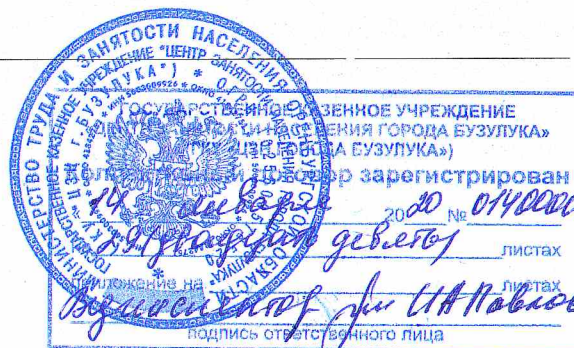 МИНИСТЕРСТВО ТРУДА И ЗАНЯТОСТИ НАСЕЛЕНИЯ ОРЕНБУРГСКОЙ ОБЛАСТИ
ГОСУДАРСТВЕННОЕ КАЗЕННОЕ УЧРЕЖДЕНИЕ "ЦЕНТР ЗАНЯТОСТИ НАСЕЛЕНИЯ ГОРОДА БУЗУЛУКА"
ГОСУДАРСТВЕННОЕ КАЗЕННОЕ УЧРЕЖДЕНИЕ
ЗАНЯТОСТИ НАСЕЛЕНИЯ ГОРОДА БУЗУЛУКА»
ГОРОДА БУЗУЛУКА»)
Коллективный договор зарегистрирован
14 января 2020 № 0140000
29 (двадцати девяты) листах
приложение на листах
И А Павлов
подпись ответственного лица